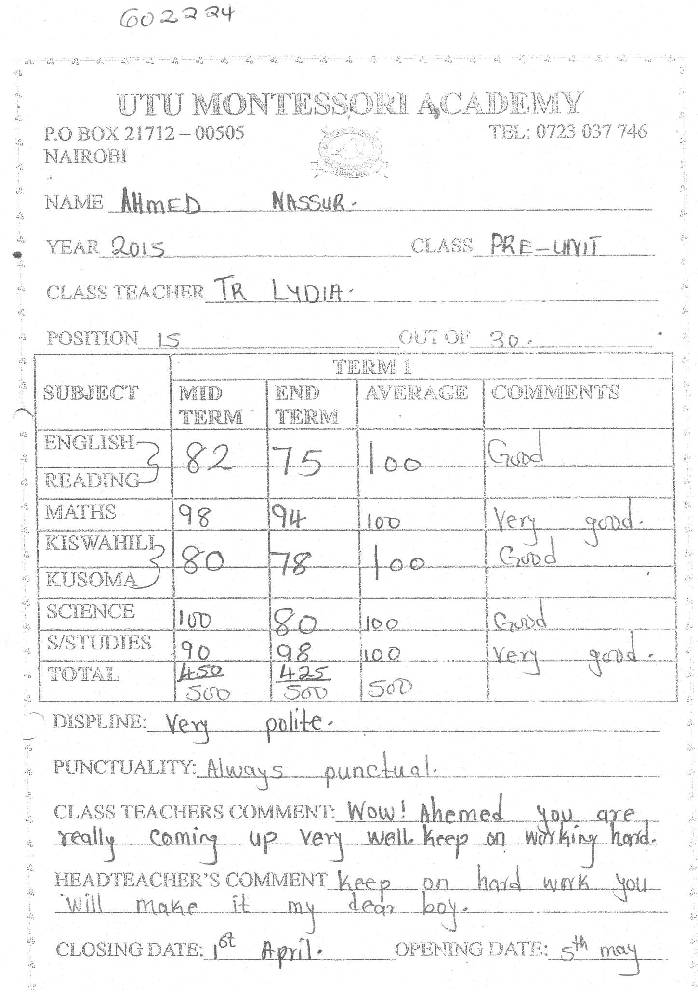 602224
UTU MONTESSORI ACADEMY
P.O BOX 21712 – 00505 TEL: 0723 037 746
NAIROBI
NAME AHMED NASSUR.
YEAR 2015 CLASS PRE-UNIT
CLASS TEACHER TR LYDIA.
POSITION 15 OUT OF 30.
TERM 1
SUBJECT MID TERM END TERM AVERAGE COMMENTS
ENGLISH READING 82 75 100 Good
MATHS 98 94 100 Very good.
KISWAHILI KUSOMA 80 78 100 Good
SCIENCE 100 80 100 Good
S/STUDIES 90 98 100 Very good.
TOTAL 450/500 425/500 500
DISPLINE: Very polite.
PUNCTUALITY: Always punctual.
CLASS TEACHERS COMMENT: Wow! Ahemed you are
really coming up very well. keep on working hard.
HEADTEACHER'S COMMENT keep on hard work you
will make it my dear boy.
CLOSING DATE: 1st April. OPENING DATE: 5th may